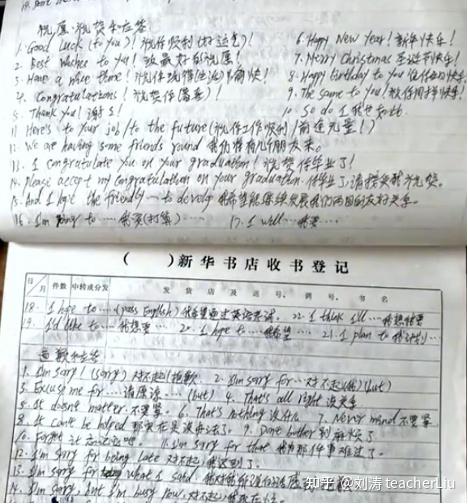 祝愿、祝贺和应答
1. Good Luck (to you)! 祝你顺利(好运气)! 6. Happy New Year! 新年快乐!
2. Best wishes to you! 致最好的祝愿! 7. Merry Christmas 圣诞节快乐!
3. Have a nice time! 祝你玩得愉快! 8. Happy birthday to you 祝你生日快乐!
4. Congratulations! 祝贺你 9. The same to you! 也同样祝你!
5. Thank you! 谢谢! 10. So do I 我也如此
11. Here's to your job/to the future (祝你工作顺利/前途无量!)
12. We are having some friends round 我们将有几个朋友来。
13. I congratulate you on your graduation! 祝贺你毕业了!
14. Please accept my congratulation on your graduation. 你毕业了,请接受我的祝贺。
15. And I hope the friendly to develop 我希望能继续发展我们两国的友好关系。
16. I'm going to …… 我要(打算)…… 17. I will …… 我要……
( ) 新华书店收书登记
日/月 件数 中转成分发 发货店及运号、调号、书名
18. I hope to …… (pass English) 我希望通过英语考试. 22. I think I'll …… 我想我要
19. I'd like to …… 我想要…… 20. I hope to …… 我希望…… 21. I plan to 我计划……
道歉和应答
1. I'm sorry! (sorry) 对不起(抱歉) 2. I'm sorry for …… 对不起 (but)
3. Excuse me for …… 请原谅…… (but) 4. That's all right 没关系
5. It doesn't matter. 不要紧. 6. That's nothing 没什么 7. Never mind 不要紧
8. It can't be 实在是没办法了. 9. Don't bother 别麻烦了
10. Forget it 忘记它吧. 11. I'm sorry for that 我为那件事难过了.
12. I'm sorry for being late 对不起我迟到了.
13. I'm sorry for what I said 我对我所说的
14. I'm sorry, but I'm busy now. 对不起
知乎 @刘涛 teacherLiu